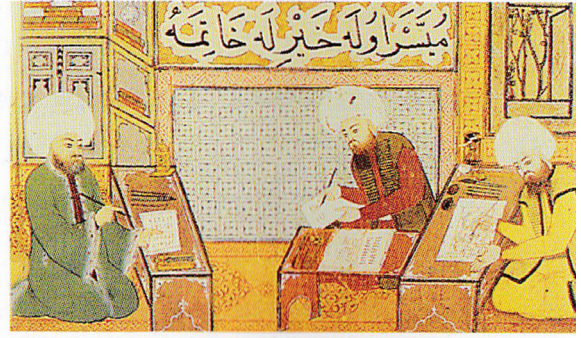 مُيَسَّرْ اوُلَه خَيْرِلَه خَاتِمَه